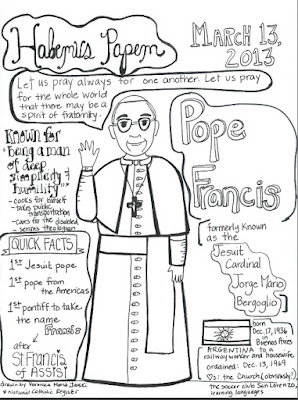 Habemus Papem
MARCH 13,
2013
Let us pray always for one another. Let us pray
for the whole world
that there may be a
spirit of fraternity.
Pope
Francis
Known for
"being a man of
deep
simplicity &
humility"
- cooks for himself
- takes public
transportation
- cares for the disabled
- serious theologian
formerly known
as the
Jesuit
Cardinal
Jorge Mario
Bergoglio
QUICK FACTS
1st Jesuit pope
1st pope from
the Americas
1st pontiff to take
the name
Francis
after
St. Francis
of Assisi
born
Dec. 17, 1936
in
Buenos Aires
ARGENTINA to a
railway worker and housewife
ordained: Dec. 13, 1969
♡s: the Church (obviously!),
the soccer club San Lorenzo,
learning languages
drawn by
National Catholic Register